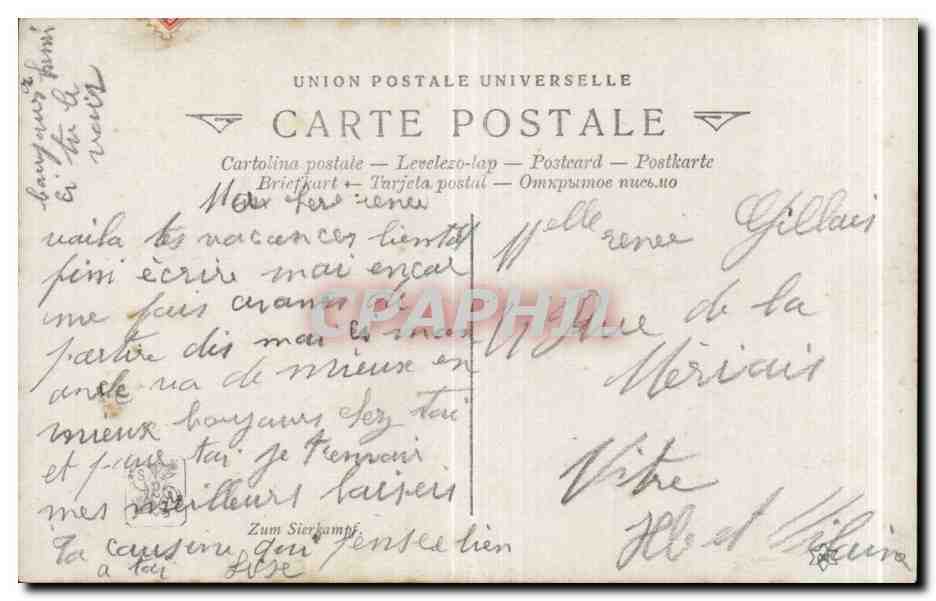 UNION POSTALE UNIVERSELLE
CARTE POSTALE
Cartolina postale — Levelezo-lap — Postcard — Postkarte
Briefkart — Tarjeta postal — Открытое письмо
bonjours
si tu le
vois
Ma chere renee
voila tes vacances bientot
fini écrire moi encor
une fois avans de
partire dis moi si mon
oncle va de mieux en
mieux bonjours chez toi
et pour toi je t'envoir
mes meilleurs baiseis
Ta cousine qui pense bien
a toi Rose
Zum Sierkampf.
Melle renée Gillais
Rue de la
Mériais
Vitre
Ille et Vilaine
CPAPHIL